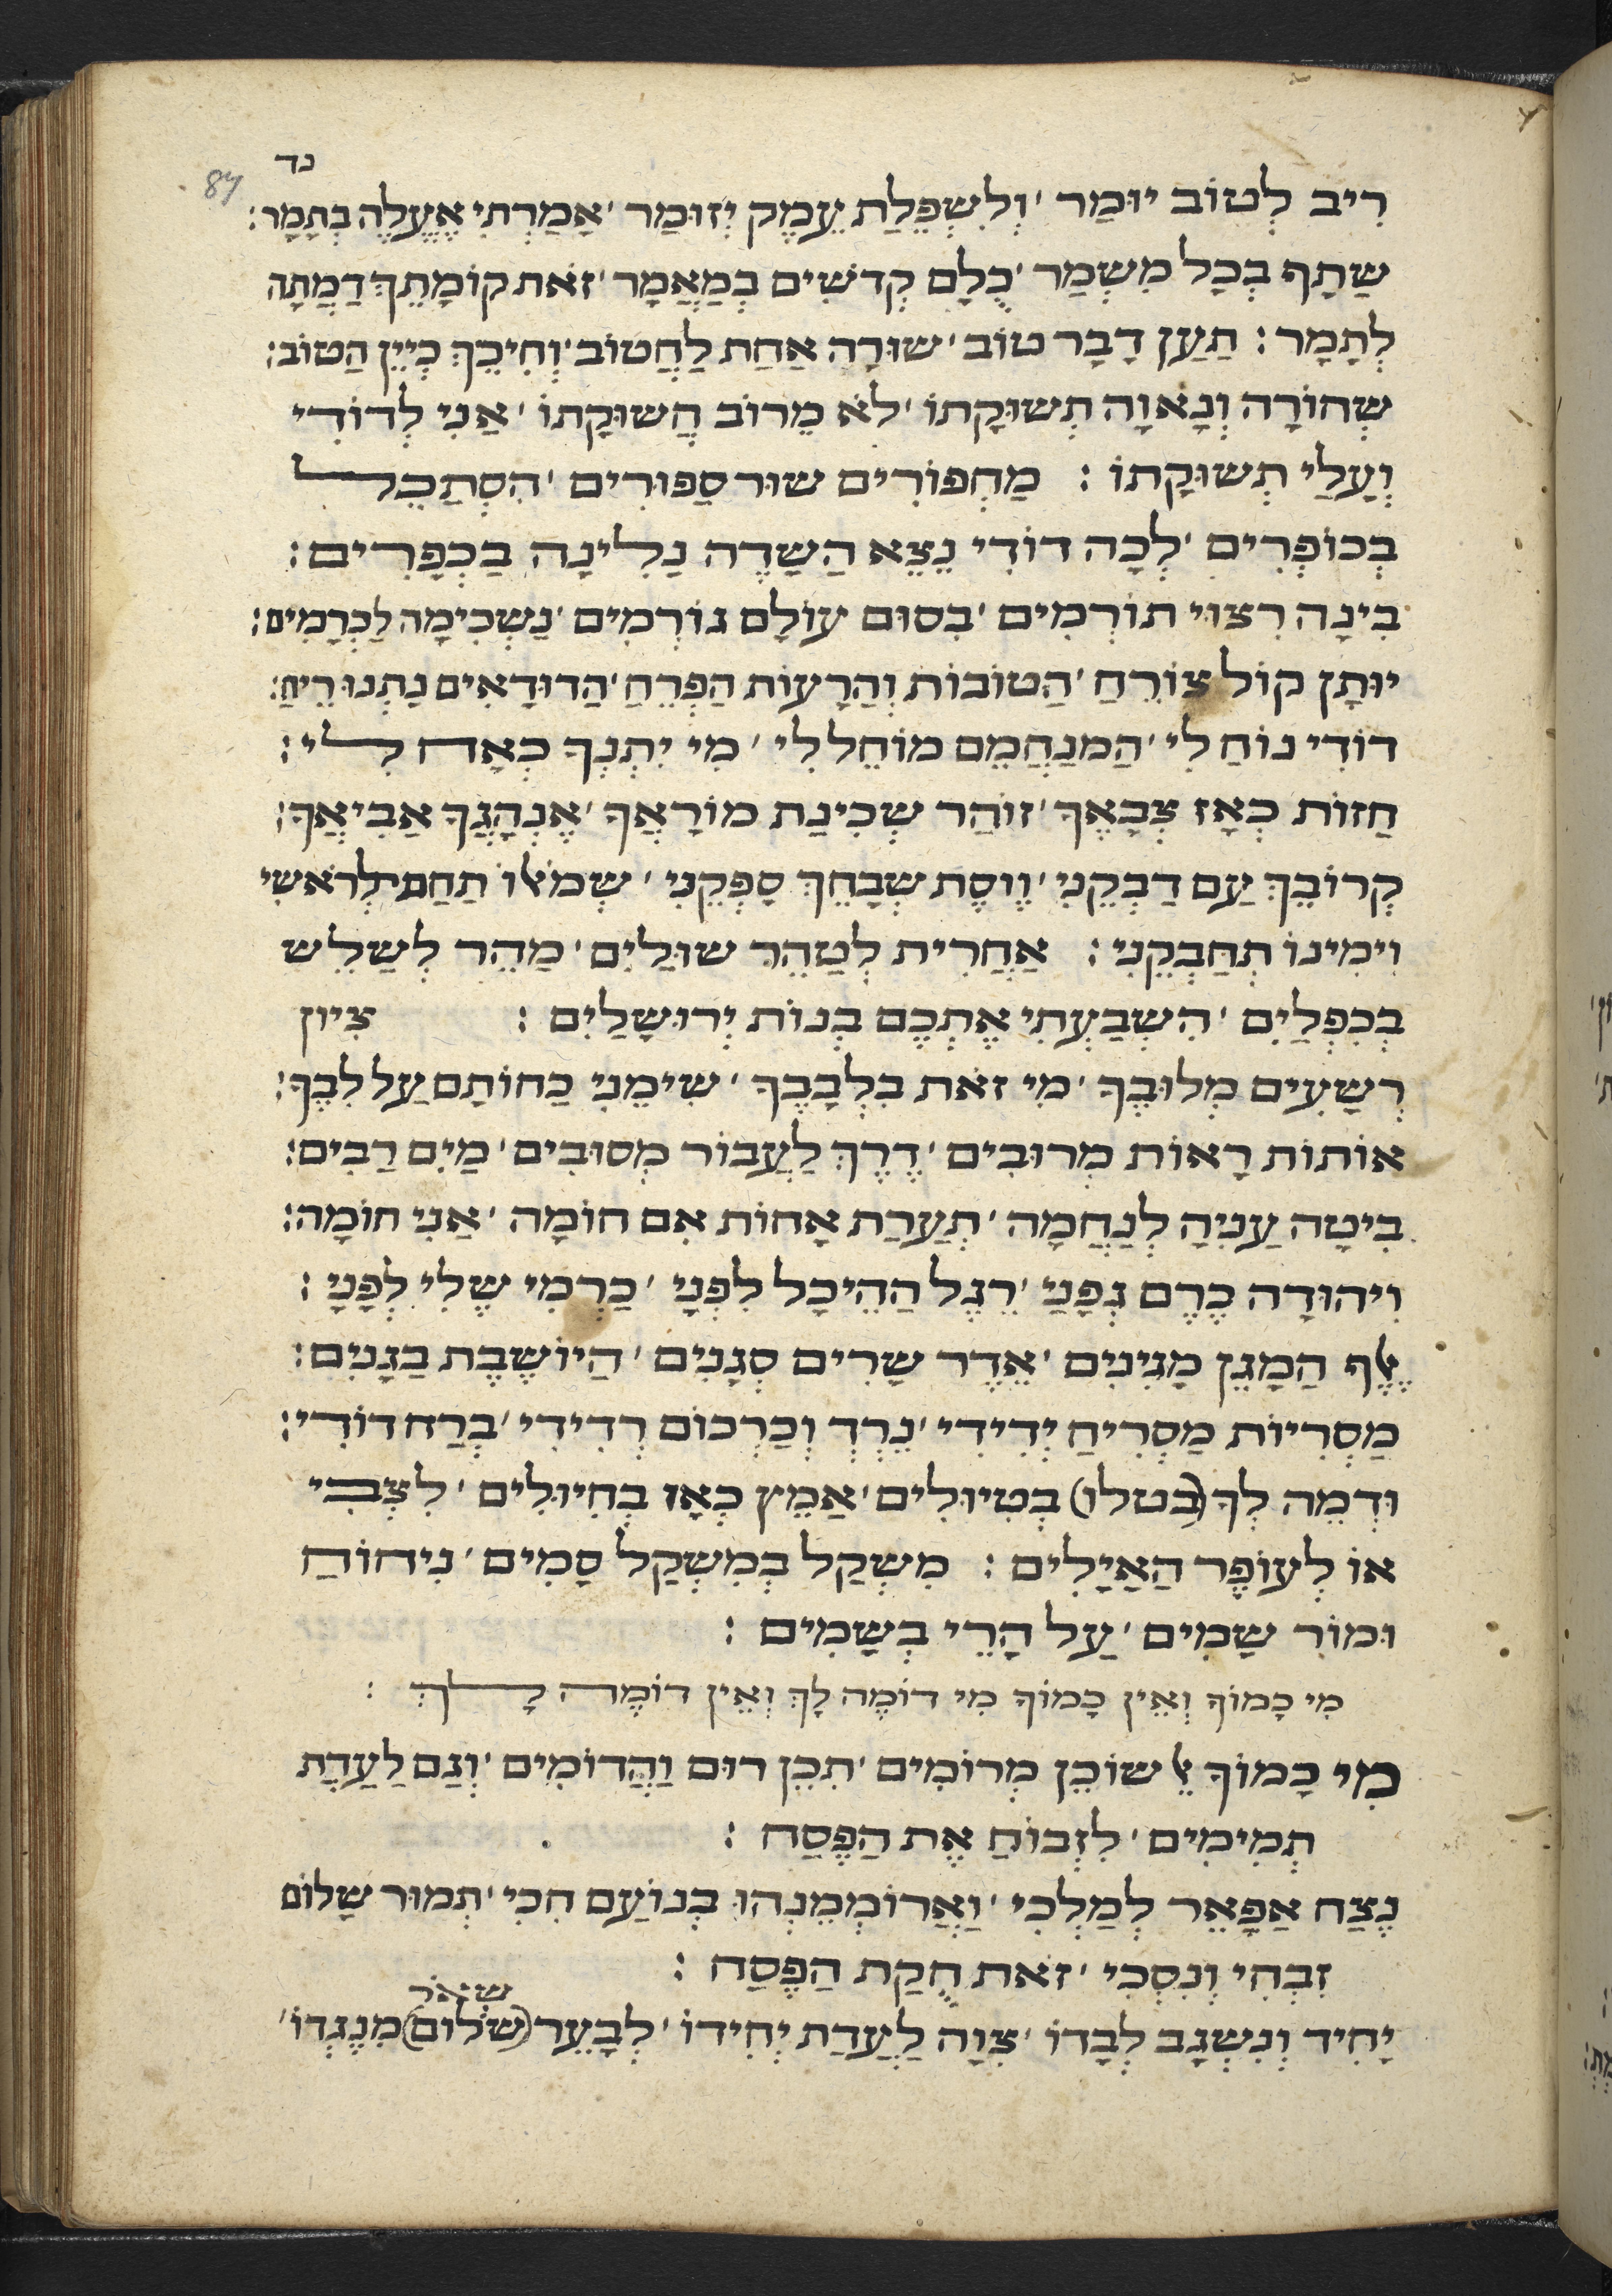 נד
87
רִיב לְטוֹב יוּמַר ׳ וְלִשְׁפֵלַת עֵמֶק יְזוּמַר ׳ אָמַרְתִּי אֶעֱלֶה בְתָמָר :
שַׁתָּף בְּכָל מִשְׁמַר ׳ כֻלָּם קְדֹשִׁים בְּמַאֲמָר ׳ זֹאת קוֹמָתֵךְ דַּמְתָה
לְתָמָר : תַּעַן דָּבָר טוֹב ׳ שׁוּרָה אַחַת לַחֲטוֹב ׳ וְחִיכֵּךְ כְּיֵין הַטּוֹב :
שְׁחוֹרָה וְנָאוָה תְּשׁוּקָתוֹ ׳ לֹא מֵרוֹב חֲשׁוּקָתוֹ ׳ אֲנִי לְדוֹדִי
וְעָלַי תְּשׁוּקָתוֹ : מַחְפּוֹרִים שׁוּר סַפּוּרִים ׳ הִסְתַּכֵּל
בְּכוֹפְרִים ׳ לְכָה דוֹדִי נֵצֵא הַשָּׂדֶה נָלִינָה בַּכְּפָרִים :
בִּינָה רִצּוּי תּוֹרְמִים ׳ בִּסּוּם עוֹלָם גּוֹרְמִים ׳ נַשְׁכִּימָה לַכְּרָמִים :
יוּתָּן קוֹל צוֹרֵחַ ׳ הַטּוֹבוֹת וְהָרָעוֹת הַפְרֵחַ ׳ הַדּוּדָאִים נָתְנוּ רֵיחַ :
דּוֹדִי נוֹחַ לִי ׳ הַמְנַחֲמֵם מוֹחֵל לִי ׳ מִי יִתֶּנְךָ כְּאָח לִי :
חֲזוֹת כְּאָז צְבָאֶךָ ׳ זוֹהַר שְׁכִינַת מוֹרָאֶךָ ׳ אֶנְהָגֲךָ אֲבִיאֲךָ :
קְרוֹבֵךְ עַם דַּבְּקֵנִי ׳ וְוֶסֶת שְׁבָחֵךְ סַפְּקֵנִי ׳ שְׂמֹאלוֹ תַּחַת לְרֹאשִׁי
וִימִינוֹ תְּחַבְּקֵנִי : אַחֲרִית לְטַהֵר שׁוּלַיִם ׳ מַהֵר לְשַׁלֵּשׁ
בְּכִפְלַיִם ׳ הִשְׁבַּעְתִּי אֶתְכֶם בְּנוֹת יְרוּשָׁלַיִם : צִיּוּן
רְשָׁעִים מִלּוּבֶּךָ ׳ מִי זֹאת בִּלְבָבֶךָ ׳ שִׂימֵנִי כַחוֹתָם עַל לִבֶּךָ :
אוֹתוֹת רָאוֹת מְרוּבִּים ׳ דֶּרֶךְ לַעֲבוֹר מְסוּבִּים ׳ מַיִם רַבִּים :
בִּיטָה עֲנִיָּה לְנֶחָמָה ׳ תְּעָרַת אָחוֹת אִם חוֹמָה ׳ אֲנִי חוֹמָה :
וִיהוּדָה כֶּרֶם גְּפָנַי ׳ רֶגֶל הַהֵיכָל לִפְנָי ׳ כַּרְמִי שֶׁלִּי לְפָנָי :
אֶלֶף הַמָּגֵן מָגִינִים ׳ אֶדֶר שָׂרִים סְגָנִים ׳ הַיּוֹשֶׁבֶת בַּגַּנִּים :
מַסְרִיּוֹת מַסְרִיחַ יְדִידִי ׳ נֵרְדְּ וְכַרְכּוֹם רְדִידִי ׳ בְּרַח דּוֹדִי :
וּדְמֵה לְךָ (בטלו) בְּטִיּוּלִים ׳ אַמֵּץ כְּאָז בְּחִיּוּלִים ׳ לִצְבִי
אוֹ לְעוֹפֶר הָאַיָּלִים : מִשְׁקַל בְּמִשְׁקַל סַמִּים ׳ נִיחוֹחַ
וּמוֹר שַׂמִּים ׳ עַל הָרֵי בְשָׂמִים :
מִי כָּמוֹךָ וְאֵין כָּמוֹךָ מִי דוֹמֶה לָּךְ וְאֵין דּוֹמֶה לָּךְ :
מִי כָּמוֹךָ אֵל שׁוֹכֵן מְרוֹמִים ׳ תִּכֵּן רוּם וַהֲדוֹמִים ׳ וְנָם לַעֲדַת
תְּמִימִים ׳ לִזְבּוֹחַ אֶת הַפֶּסַח :
נֶצַח אֲפָאֵר לְמַלְכִּי ׳ וַאֲרוֹמְמֶנְהוּ בְּנוֹעַם חִכִּי ׳ תְּמוּר שָׁלוֹם
זִבְחִי וְנִסְכִּי ׳ זֹאת חֻקַּת הַפֶּסַח :
שאור
יָחִיד וְנִשְׂגָּב לְבַדּוֹ ׳ צִוָּה לַעֲדַת יְחִידוֹ ׳ לְבָעֵר (שלום) מִנֶּגְדּוֹ ׳